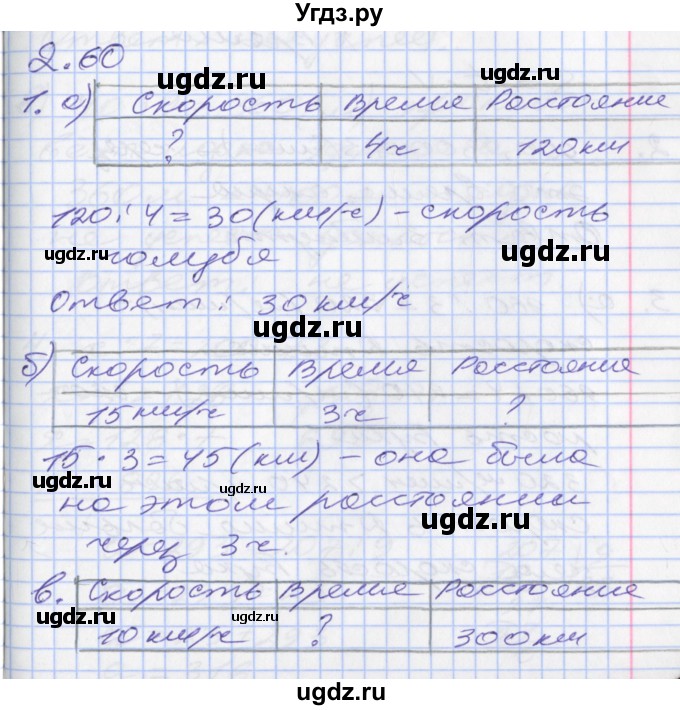 Угдз.ру
2.60
ugdz.ru ugdz.ru
1. а) Скорость Время Расстояние
? 4ч 120км
ugdz.ru ugdz.ru
120:4=30(км/ч) - скорость
ugdz.ru голубя
Ответ: 30км/ч
ugdz.ru
б) Скорость Время Расстояние
15км/ч 3ч ?
15·3=45(км) - она была
ugdz.ru ugdz.ru
на этом расстоянии
ugdz.ru
через 3ч.
в. Скорость Время Расстояние
ugdz.ru ugdz.ru ugdz.ru
10км/ч ? 300км
ugdz.ru